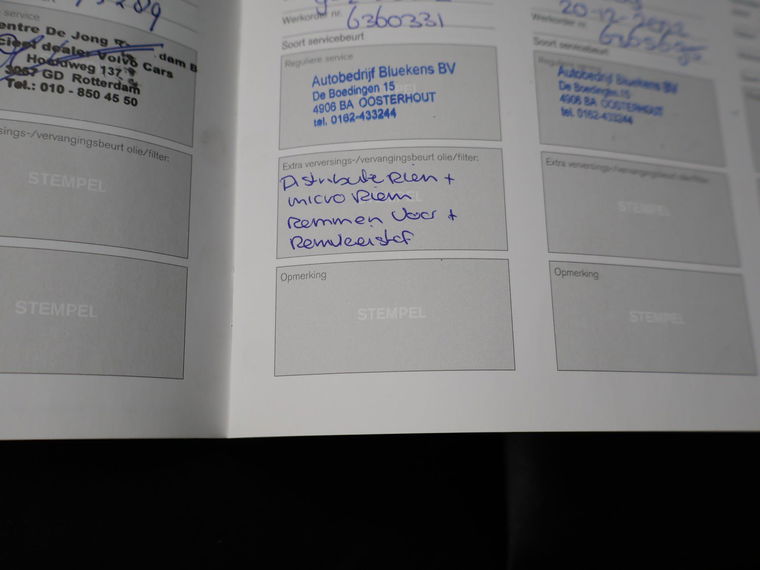 service
entre De Jong
dam B
cieel dealer Volvo Cars
Hoofdweg 137
3067 GD Rotterdam
Tel.: 010 - 850 45 50
sings-/vervangingsbeurt olie/filter:
STEMPEL
STEMPEL
Werkorder nr. 6360331
Soort servicebeurt
Reguliere service
Autobedrijf Bluekens BV
De Boedingen 15
4906 BA OOSTERHOUT
tel. 0162-433244
Extra verversings-/vervangingsbeurt olie/filter:
Distributie Riem +
micro Riem
Remmen Voor +
Remvloeistof
Opmerking
STEMPEL
20-12-2022
Werkorder nr.
Soort servicebeurt
Reguliere service
Autobedrijf Bluekens BV
De Boedingen 15
4906 BA OOSTERHOUT
tel. 0162-433244
Extra verversings-/vervangingsbeurt olie/filter:
STEMPEL
Opmerking
STEMPEL